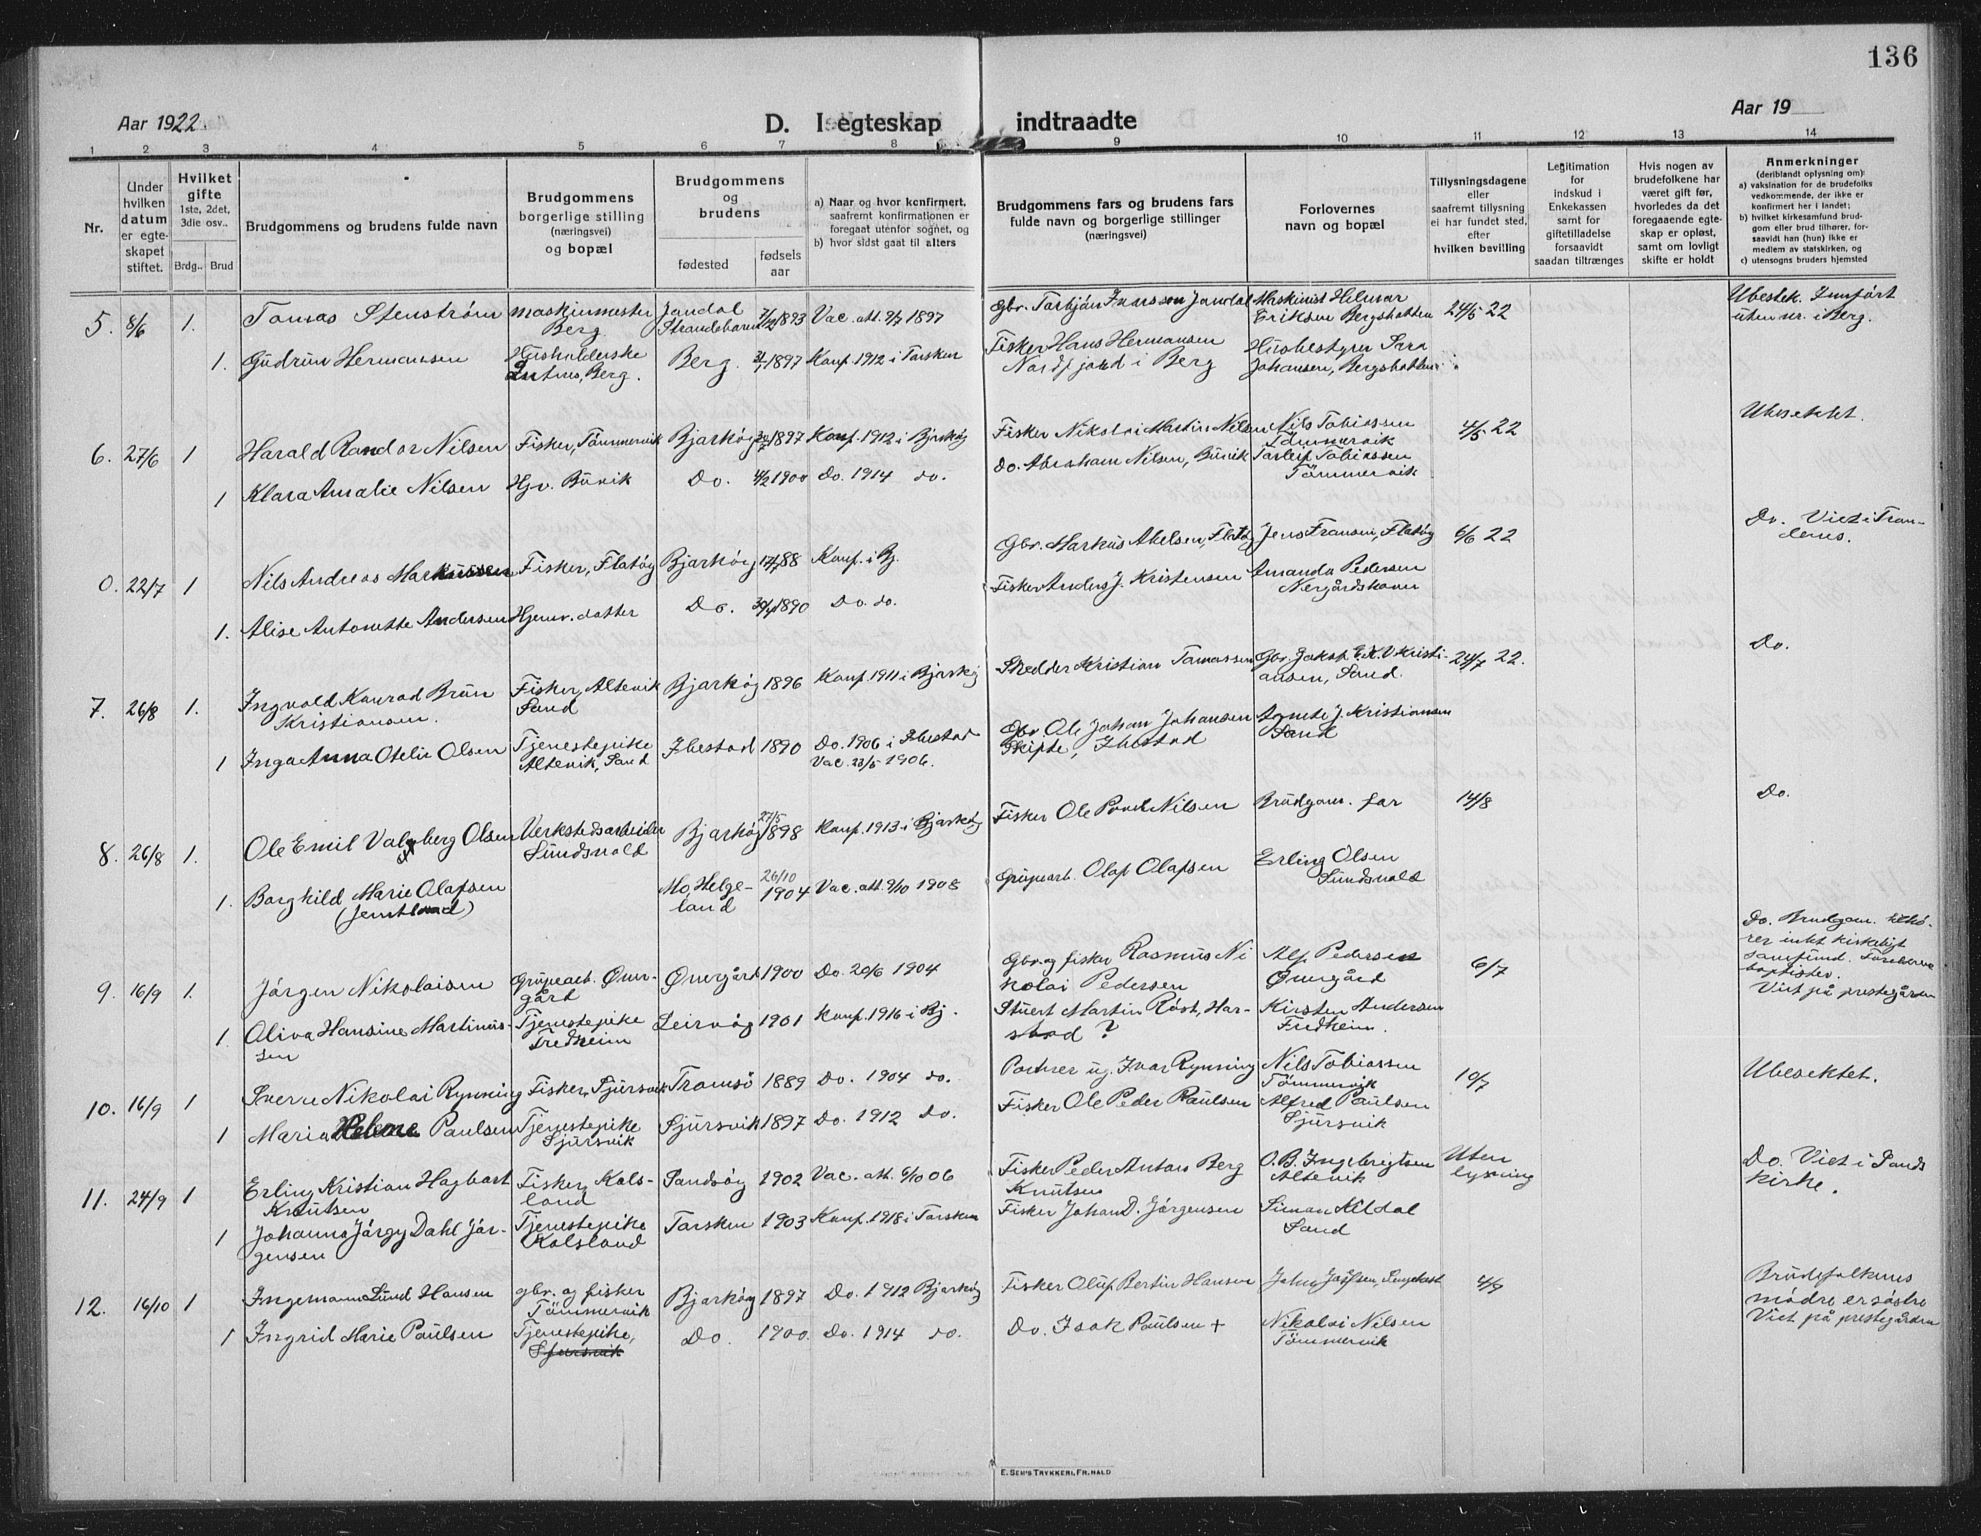 136
Aar 1922.
D. I egteskap indtraadte
Aar 19
1 2 3 4 5 6 7 8 9 10 11 12 13 14
Nr.
Under hvilken datum er egteskapet stiftet.
Hvilket gifte
1ste, 2det, 3die osv..
Brdg. Brud
Brudgommens og brudens fulde navn
Brudgommens borgerlige stilling (næringsvei) og bopæl
Brudgommens og brudens
fødested
fødsels aar
a) Naar og hvor konfirmert, saafremt konfirmationen er foregaat utenfor sognet, og
b) hvor sidst gaat til alters
Brudgommens fars og brudens fars fulde navn og borgerlige stillinger (næringsvei)
Forlovernes navn og bopæl
Tillysningsdagene eller saafremt tillysning ei har fundet sted, efter hvilken bevilling
Legitimation for indskud i Enkekassen samt for giftetilladelse forsaavidt saadan tiltrænges
Hvis nogen av brudefolkene har været gift før, hvorledes da det foregaaende egteskap er opløst, samt om lovligt skifte er holdt
Anmerkninger
(deriblandt oplysning om):
a) vaksination for de brudefolks vedkommende, der ikke er konfirmert her i landet;
b) hvilket kirkesamfund brudgom eller brud tilhører, forsaavidt han (hun) ikke er medlem av statskirken, og
c) utensogns bruders hjemsted
5. 8/6 1. Tomas Stenstrøm Maskinmester Berg. Jondal Strandebarm 1893 Vac. att. 9/7 1897 Gbr. Torbjön Ivarsson Jondal Maskinist Hilmar Eriksen Bergsbotten 24/5 22 Ubeslek. Innført uten nr. i Berg.
1. Gudrun Hermansen Husholderske Berg. Berg. 1897 Konf. 1912 i Torsken Fisker Hans Hermansen Nordfjord i Berg Husbestyrer Sara Johansen, Bergsbotten
6. 27/6 1 Harald Randor Nilsen Fisker, Tömmervik Bjarköy 1897 Konf. 1912 i Bjarköy Fisker Nikolai Martin Nilsen Nils Tobiassen Tömmervik 4/5 22 Ubesektet.
1 Klara Amalie Nilsen Hjv. Buvik Do. 4/2 1900 Do. 1914 do. Do. Abraham Nilsen, Buvik Torleif Tobiassen Tömmervik
0. 22/7 1 Nils Andreas Markussen Fisker, Flatöy Bjarköy 88 Konf. i Bj. Gbr. Markus Abelsen, Flatöy Jens Fransen, Flatöy 6/6 22 Do. Viet i Tranöenes.
1. Alise Antonette Andersen Hjemv. datter Do. 1890 Do. do. Fisker Anders J. Kristensen Amanda Pedersen Nergårdshavn
7. 26/8 1. Ingvald Konrad Brun Kristiansen. Fisker, Altevik Sand Bjarköy 1896 Konf. 1911 i Bjarköy Skredder Kristian Tomassen Gbr. Jakob E.K.V. Kristiansen, Sand. 24/7 22. Do.
1 Inga Anna Otelie Olsen Tjenestepike Altevik, Sand Ibestad 1890 Do. 1906 i Ibestad Vac. 23/5 1906. Gbr. Ole Johan Johansen Skipte, Ibestad Agnete J. Kristiansen Sand
8. 26/8 1. Ole Emil Valberg Olsen Verkstedsarbeider Sundsvold Bjarköy 27/5 1898 Konf. 1913 i Bjarköy Fisker Ole Povel Nilsen Brudgom. far 14/8 Do.
1. Borghild Marie Olafsen (Jemtland) Mo, Helgeland 26/10 1904 Vac. att. 9/10 1908 Grubearb. Olaf Olafsen Erling Olsen Sundsvold
9. 16/9 1. Jörgen Nikolaisen Grubearb. Övergård Övergård 1900 Do. 20/6 1904 Gbr. og fisker Rasmus Nikolai Pedersen Alf Pedersen Övergård 6/7 Do. Brudgom. tilhörer intet kirkeligt samfund. Foreldrene baptister. Viet på prestegården
1 Oliva Hansine Martinussen Tjenestepike Fredheim Leirvåg 1901 Konf. 1916 i Bj. Stuert Martin Röst, Harstad ? Kirsten Andersen Fredheim.
10. 16/9 1 Sverre Nikolai Rynning Fisker, Sjursvik Tromsö 1889 Do. 1904 do. Ivar Rynning Nils Tobiassen Tömmervik 10/7 Ubesektet.
1 Maria Helene Paulsen Tjenestepike Sjursvik Sjursvik 1897 Do. 1912 do. Fisker Ole Peder Paulsen Alfred Paulsen Sjursvik
11. 24/9 1 Erling Kristian Hagbart Knutsen Fisker, Kalsland Sandvåg 1902 Vac. att. 6/10 06 Fisker Peder Antons Berg Knutsen O.B. Ingebrigtsen Altevik Uten lysning Do. Viet i Sands kirke.
1 Johanna Jörgy Dahl Jörgensen Tjenestepike Kalsland Torsken 1903 Konf. 1918 i Torsken Fisker Johan D. Jörgensen Simon Kildal Sand
12. 16/10 1 Ingemann Lund Hansen Gbr. og fisker Tömmervik Bjarköy 1897 Do. 1912 Bjarköy Fisker Oluf Bertin Hansen 4/9 Brudefolkenes mödre er söstre Viet på prestegården
1 Ingrid Marie Paulsen Tjenestepike, Sjursvik Do. 1900 Do. 1914 do. Do. Isak Paulsen + Nikolai Nilsen Tömmervik
E. SEM'S TRYKKERI, FR. HALD